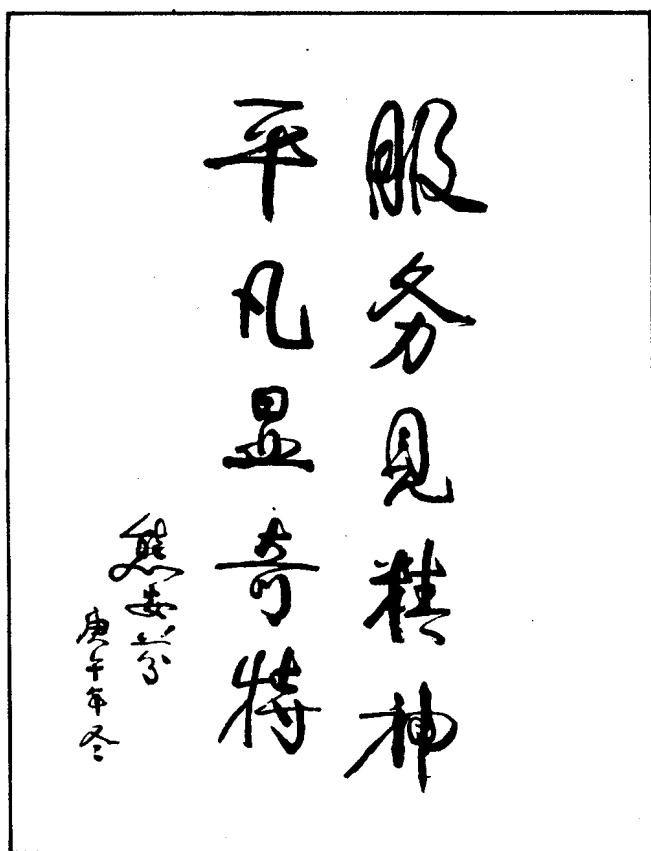 服务见精神
平凡显奇特
熊安芬
庚午年冬